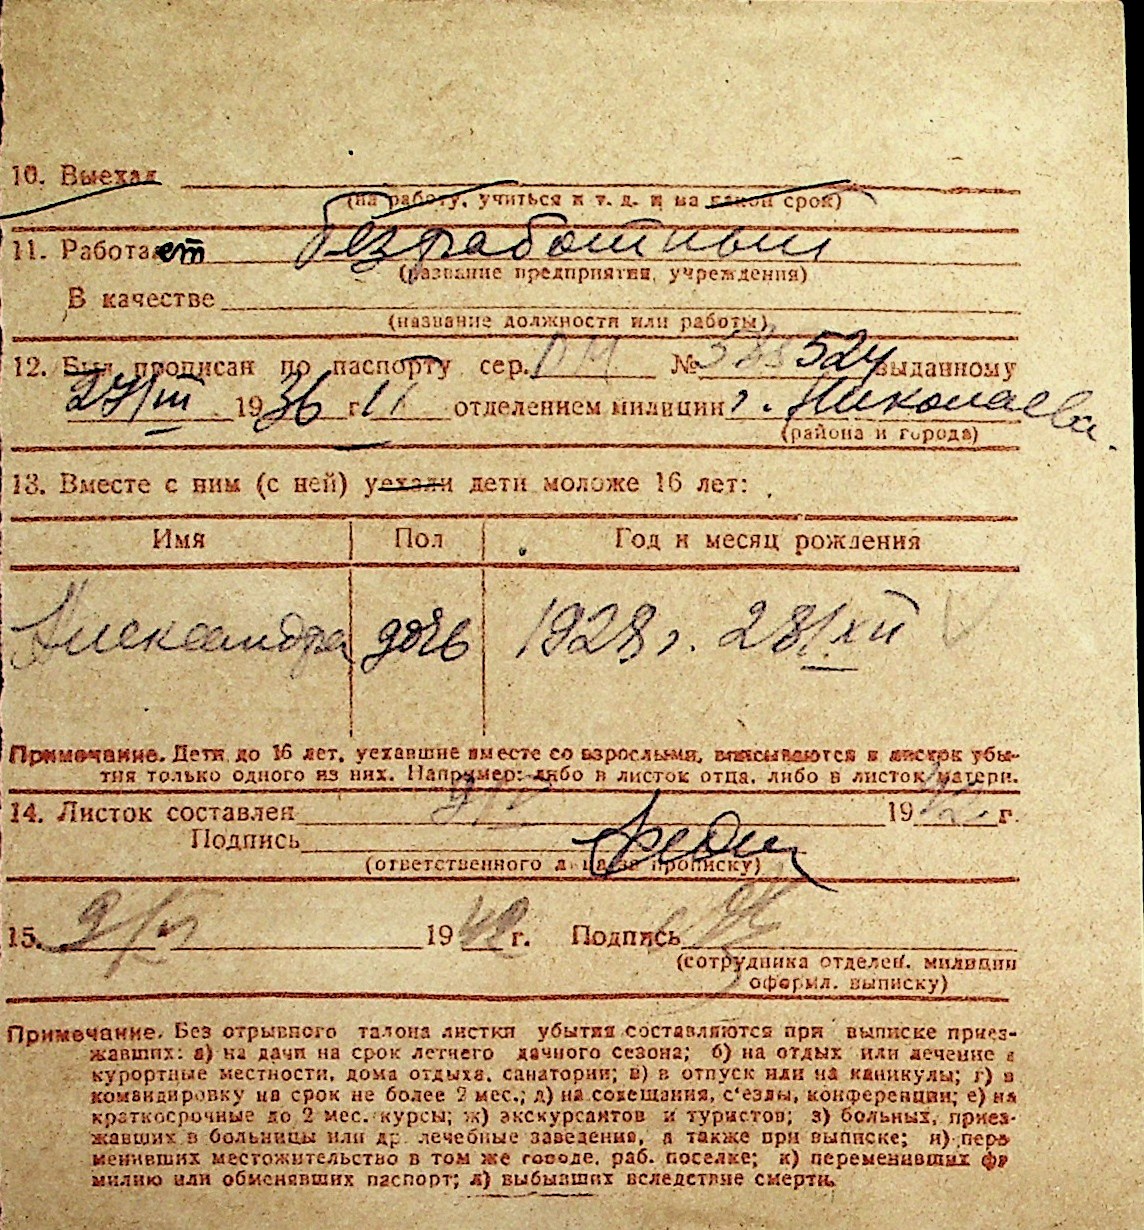 10. Выехал
(на работу, учиться и т. д. и на какой срок)
11. Работает безработный
(название предприятия, учреждения)
В качестве
(название должности или работы)
12. Был прописан по паспорту сер. ПМ № 524 выданному
27/III 1936 г. отделением милиции г. Николаева.
(района и города)
13. Вместе с ним (с ней) уехали дети моложе 16 лет:
Имя Пол Год и месяц рождения
Александра дочь 1928 г. 28/XII
Примечание. Дети до 16 лет, уехавшие вместе со взрослыми, вписываются в листок убы-
тия только одного из них. Например: либо в листок отца, либо в листок матери.
14. Листок составлен 9/V 1942 г.
Подпись
(ответственного лица за прописку)
15. 9/V 1942 г. Подпись
(сотрудника отделен. милиции
оформл. выписку)
Примечание. Без отрывного талона листки убытия составляются при выписке приез-
жавших: а) на дачи на срок летнего дачного сезона; б) на отдых или лечение в
курортные местности, дома отдыха, санатории; в) в отпуск или на каникулы; г) в
командировку на срок не более 2 мес.; д) на совещания, с'езды, конференции; е) на
краткосрочные до 2 мес. курсы; ж) экскурсантов и туристов; з) больных, приез-
жавших в больницы или др. лечебные заведения, а также при выписке; и) пере
менивших местожительство в том же городе, раб. поселке; к) переменивших фа
милию или обменявших паспорт; л) выбывших вследствие смерти.